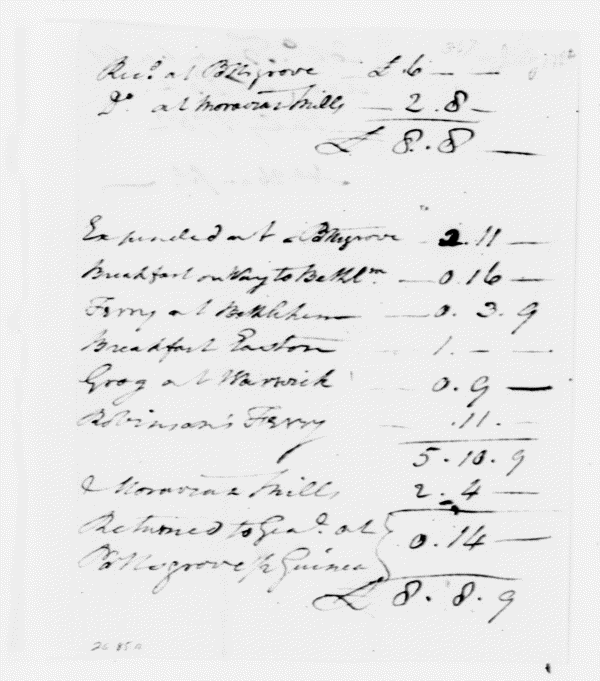 Rec.d at Pittsgrove — £ 6 — —
D.o at Moravian Mills — 2.8 —
£ 8.8 —
Expended at Pittsgrove 2.11 —
Breakfast on Way to Bethl.m — 0.16 —
Ferry at Bethlehem — 0.3.9
Breakfast Easton — 1. — —
Grog at Warwick — 0.9 —
Robinson's Ferry — .11. —
5.10.9
& Moravian Mills 2.4 —
Returned to Gen.l at 0.14 —
Pittsgrove p Guinea
£ 8.8.9